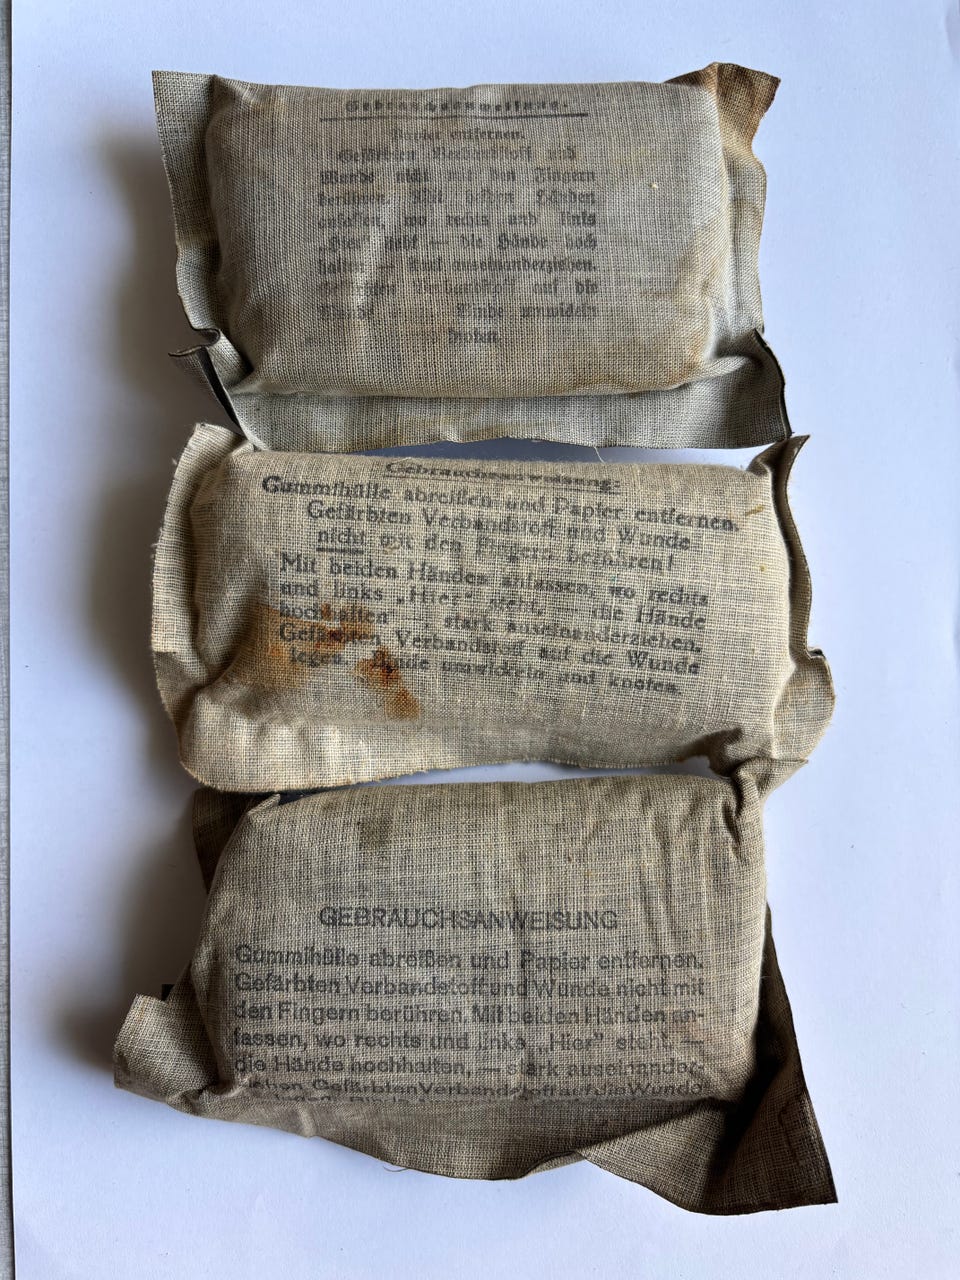 Gebrauchsanweisung.
Papier entfernen.
Gefärbten Verbandstoff und
Wunde nicht mit den Fingern
berühren. Mit beiden Händen
anfassen, wo rechts und links
„Hier“ steht — die Hände hoch
halten — stark auseinanderziehen.
Gefärbten Verbandstoff auf die
Wunde Binde umwickeln
knoten.
Gebrauchsanweisung:
Gummihülle abreißen und Papier entfernen.
Gefärbten Verbandstoff und Wunde
nicht mit den Fingern berühren!
Mit beiden Händen anfassen, wo rechts
und links „Hier“ steht, — die Hände
hochhalten — stark auseinanderziehen.
Gefärbten Verbandstoff auf die Wunde
legen. Binde umwickeln und knoten.
GEBRAUCHSANWEISUNG
Gummihülle abreißen und Papier entfernen.
Gefärbten Verbandstoff und Wunde nicht mit
den Fingern berühren. Mit beiden Händen an-
fassen, wo rechts und links „Hier“ steht, —
die Hände hochhalten, — stark auseinander-
ziehen. Gefärbten Verbandstoff auf die Wunde